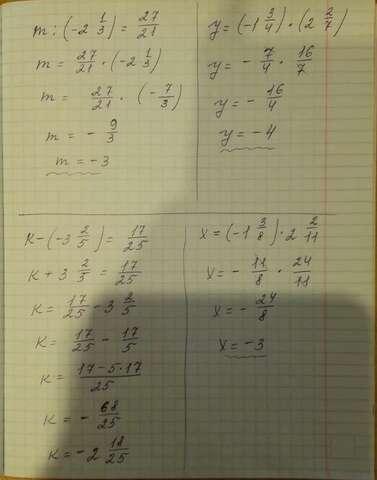 m : (-2 1/3) = 27/21
m = 27/21 · (-2 1/3)
m = 27/21 · (-7/3)
m = - 9/3
m = -3
y = (-1 3/4) · (2 2/7)
y = - 7/4 · 16/7
y = - 16/4
y = -4
K - (-3 2/5) = 17/25
K + 3 2/5 = 17/25
K = 17/25 - 3 2/5
K = 17/25 - 17/5
K = 17-5·17/25
K = - 68/25
K = -2 18/25
x = (-1 3/8) · 2 2/11
x = - 11/8 · 24/11
x = - 24/8
x = -3